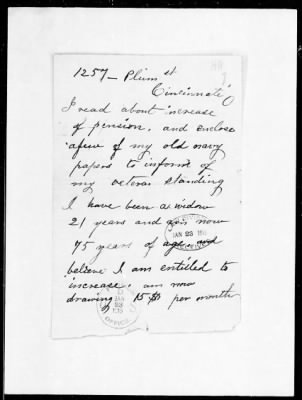 1257 – Plum st
Cincinnati O
I read about increase
of pension, and enclose
a few of my old navy
papers to inform of
my veteran standing
I have been a widow
21 years and am now
75 years of age and
believe I am entitled to
increase. am now
drawing 15 $ per month
JAN 23
JAN
23
OFFICE